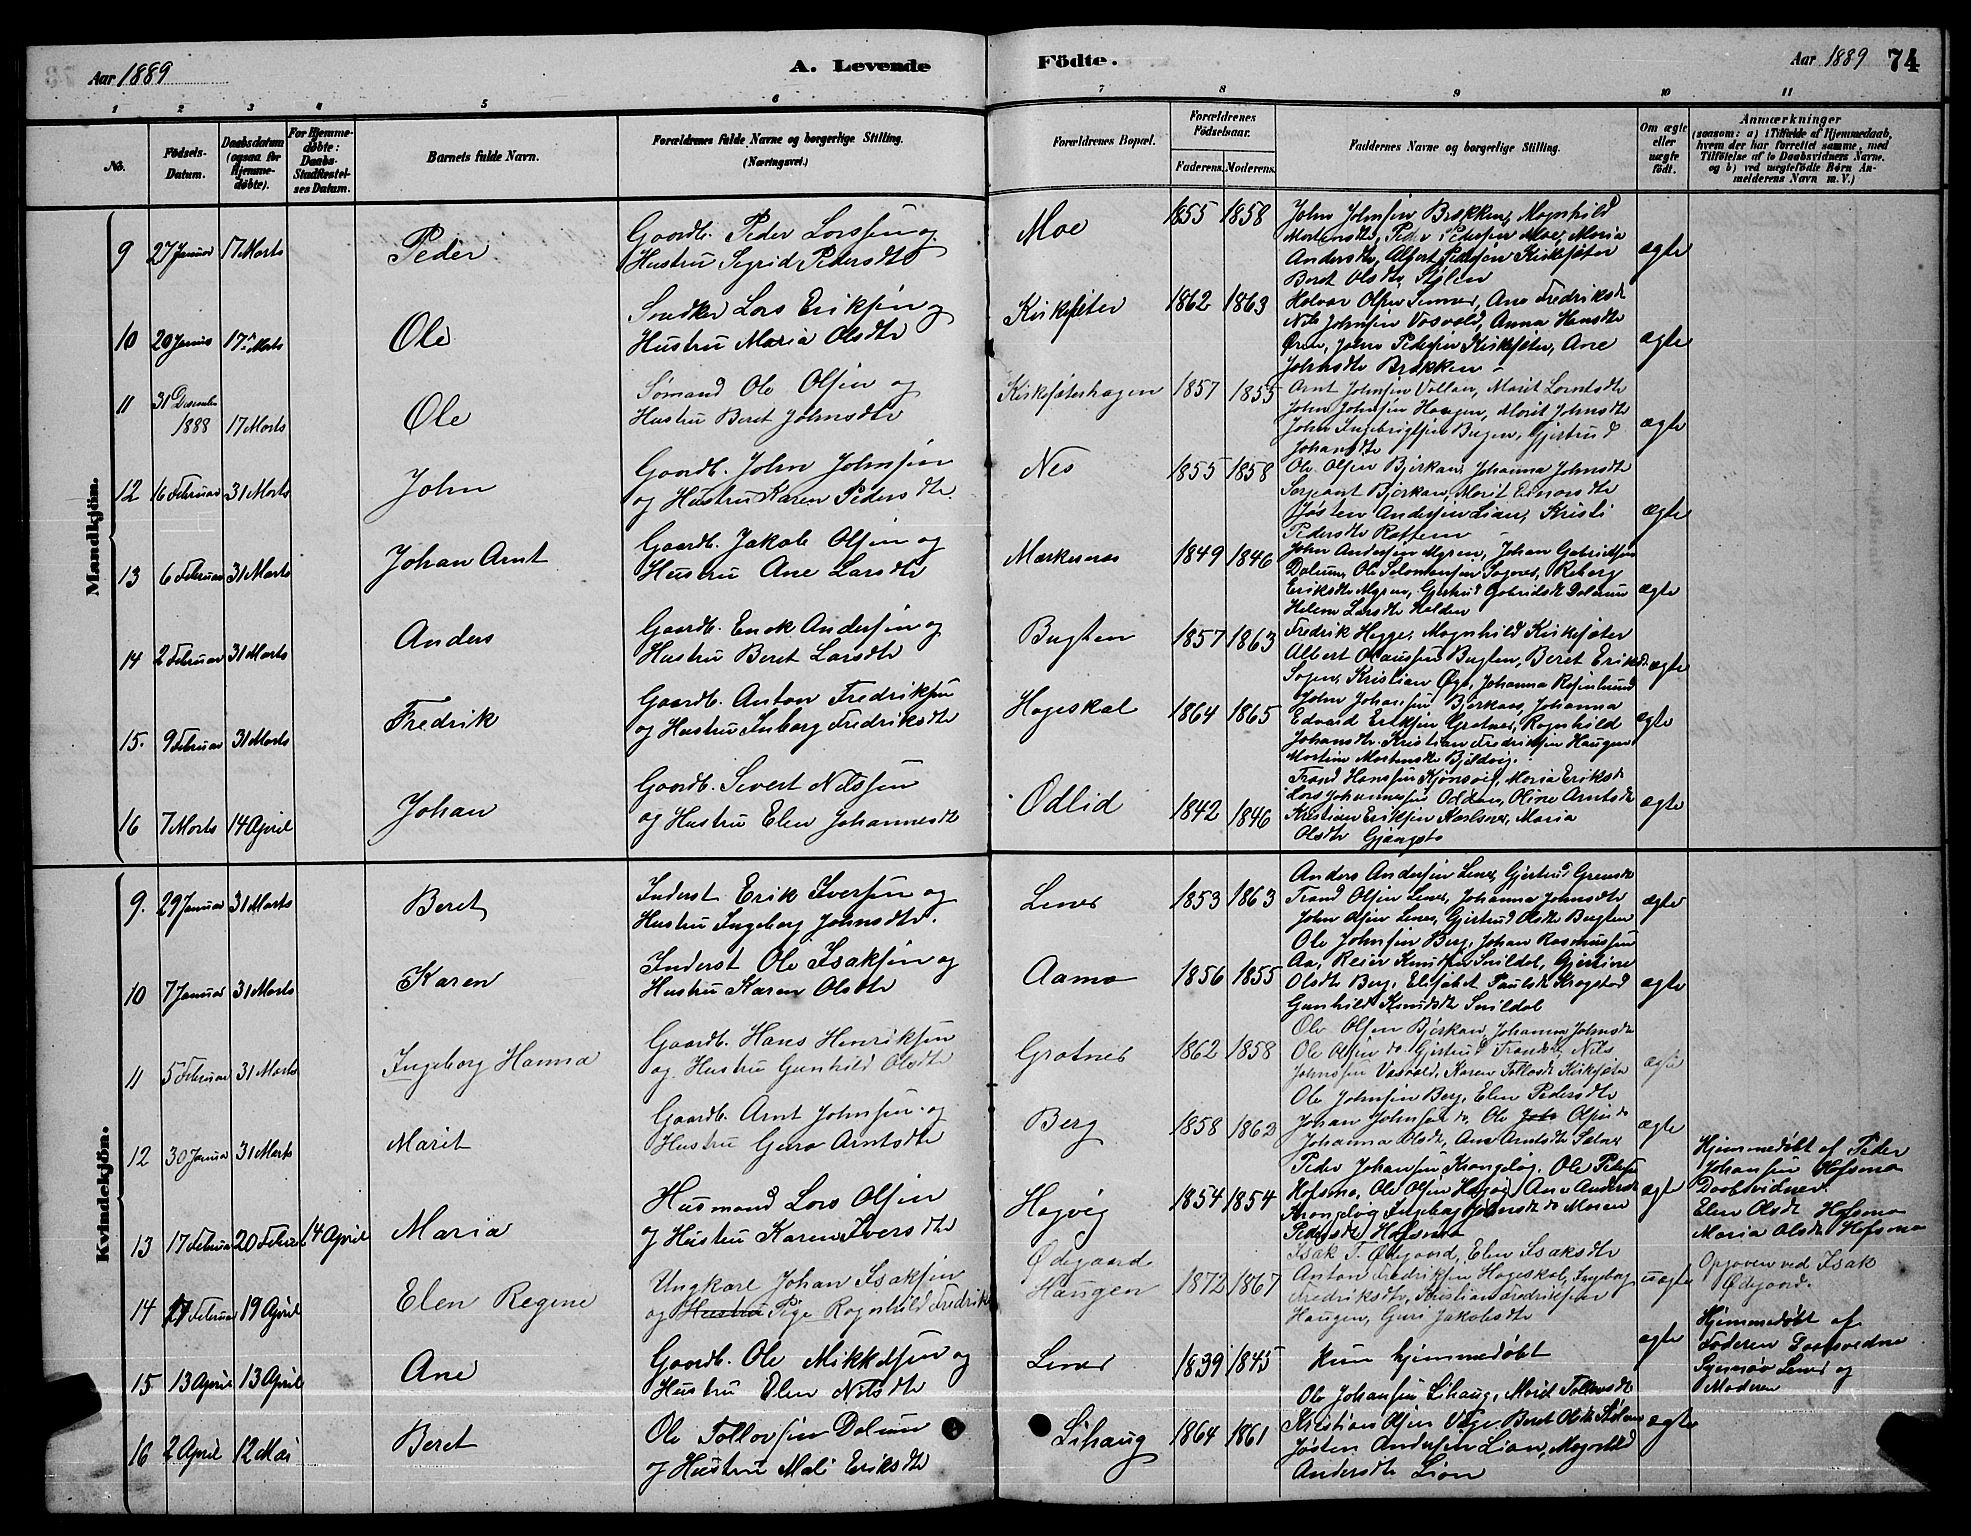 Aar 1889
A. Levende
Födte.
Aar 1889
74
1 2 3 4 5 6 7 8 9 10 11
No.
Födsels-
Datum.
Daabsdatum
(ogsaa for
Hjemme-
døbte).
For Hjemme-
døbte:
Daabs-
Stadfæstel-
ses Datum.
Barnets fulde Navn.
Forældrenes fulde Navne og borgerlige Stilling.
(Næringsvei.)
Forældrenes Bopæl.
Forældrenes
Födselsaar.
Faderens. Moderens.
Faddernes Navne og borgerlige Stilling.
Om ægte
eller
uægte
født.
Anmærkninger
(saasom: a) i Tilfælde af Hjemmedaab,
hvem der har forrettet samme, med
Tilföielse af to Daabsvidners Navne.
og b) ved uægtefödte Börn An-
melderens Navn m. V.)
Mandkjön.
9 27 Januar 17 Marts
Peder
Gaardb. Peder Larssen og
Hustru Sigrid Pedersdtr
Moe
1855 1858
John Johnsen Brækken, Magnhild
Mortensdtr, Peder Pedersen Moe, Maria
Andersdtr, Albert Pedersen Kirksæter
Beret Olsdtr Stølen
ægte
10 20 Januar 17 Marts
Ole
Snedker Lars Eriksen og
Hustru Maria Olsdtr
Kirksæter
1862 1863
Halvor Olsen, Ane Fredriksdtr
Nils Johnsen Vasvold, Anna Hansdtr
Øren, John Pedersen Kirksæter, Ane
Johnsdtr Brækken
ægte
11 31 December
1888 17 Marts
Ole
Sømand Ole Olsen og
Hustru Beret Johnsdtr
Kirksæterhagen
1857 1855
Arnt Johnsen Vollan, Marit Larntsdtr
John Johnsen Haugen, Marit Johnsdtr
John Ingebrigtsen Bugen, Gjertrud
Johansdtr
ægte
12 16 Februar 31 Marts
John
Gaardb. John Johnsen
og Hustru Karen Pedersdtr
Nes
1855 1858
Ole Olsen Bjerkan, Johanna Johnsdtr
Sergeant Bjerkan, Marit Einarsdtr
Jøsten Andersen Lian, Kristi
Pedersdtr
ægte
13 6 Februar 31 Marts
Johan Arnt
Gaardb. Jakob Olsen og
Hustru Ane Larsdtr
Mærkesnæs
1849 1846
John Andersen Myren, Johan Gabrielsen
Dalum, Ole Salomonsen Sognes, Reberg
Eriksdtr Myren, Gjertrud Gabrielsdtr Dalum
Helene Larsdtr Halden
ægte
14 2 Februar 31 Marts
Anders
Gaardb. Enok Andersen og
Hustru Beret Larsdtr
Bugten
1857 1863
Fredrik Hegge, Magnhild Kirksæter
Albert Claussen Bugten, Beret Eriksdtr
Sagen, Kristian Øye, Johanna Rosenlund
ægte
15. 9 Februar 31 Marts
Fredrik
Gaardb. Anton Fredriksen
og Hustru Inborg Fredriksdtr
Hageskal
1864 1865
John Johansen Bjerkaas, Johanna
Edvard Eriksen Grøtnes, Ragnhild
Johansdtr. Kristian Fredriksen Haugen
Martine Mortensdtr
ægte
16 7 Marts 14 April
Johan
Gaardb. Sivert Nilssen
og Hustru Elen Johannesdtr
Odlid
1842 1846
Trond Hanssen Kjønsvik, Maria Eriksdtr
Lars Johannesen Oddan, Oline Arntsdtr
Kristian Eriksen, Maria
Olsdtr Gjengsto
ægte
Kvindekjön.
9. 29 Januar 31 Marts
Beret
Inderst Erik Iversen og
Hustru Ingeborg Johnsdtr.
Lenes
1853 1863
Anders Andersen Lenes, Gjertrud
Trond Olsen Lenes, Johanna Johnsdtr
John Olsen Lenes, Gjertrud Olsdtr Bugten
ægte
10 7 Januar 31 Marts
Karen
Inderst Ole Isaksen og
Hustru Karen Olsdtr
Aamo
1856 1855
Ole Johnsen Berg, Johan Rasmussen
Aa, Reier Knudsen Snildal, Gjertine
Olsdtr Berg, Elisabet Paulsdtr Krogstad
Gunhild Knudsdtr Snildal
ægte
11 5 Februar 31 Marts
Ingeborg Hanna
Gaardb. Hans Henriksen
og Hustru Gunhild Olsdtr
Grøtnes
1862 1858
Ole Olsen Bjerkan, Johanna Johnsdtr
Ole Olsen do. Gjertrud Trondsdtr, Nils
Johnsen Vasvold, Karen Tollefsdtr Kirksæter
ægte
12 30 Januar 31 Marts
Marit
Gaardb. Arnt Johnsen og
Hustru Guro Arntsdtr
Berg
1858 1862
Ole Johnsen Berg, Elen Pedersdtr
Johan Johnsen do, Ole Olsen do
Johanna Olsdtr, Ane Arntsdtr
ægte
13 17 Februar 20 Februar 14 April
Maria
Husmand Lars Olsen
og Hustru Karen Iversdtr
Hagvig
1854 1854
Peder Johansen Krangsløg, Ole Pedersen
Hofsmo, Ole Olsen Hagvig, Ane Andersdtr
Krangsløg, Ingeborg Johnsdtr do Maren
Pedersdtr Hofsmo
ægte
Hjemmedøbt af Peder
Johansen Hofsmo
Daabsvidner
Elen Olsdtr Hofsmo
Maria Olsdtr Hofsmo
14 17 Februar 19 April
Elen Regine
Ungkarl Johan Isaksen
og Hustru Pige Ragnhild Fredriks
Ødegaard
Haugen
1872 1867
Isak T. Ødegaard, Elen Isaksdtr
Anton Fredriksen Hageskal, Ingeborg
Fredriksdtr, Kristian Fredriksen
Haugen, Guri Jakobsdtr
uægte
Opgiven ved Isak
Ødegaard.
15 13 April 13 April
Ane
Gaardb. Ole Mikkelsen og
Hustru Elen Nilsdtr
Lenes
1839 1845
kun hjemmedøbt
ægte
Hjemmedøbt af
Faderen Daabsvidne
Synnøv Lenes og
Moderen
16 2 April 12 Mai
Beret
Ole Tollovsen Dalum
og Hustru Mali Eriksdtr
Lihaug
1864 1861
Ole Johansen Lihaug, Marit Tollovsdtr
Kristian Olsen, Beret Olsdtr Stølen
Jøsten Andersen Lian, Magnhild
Andersdtr Lian
ægte